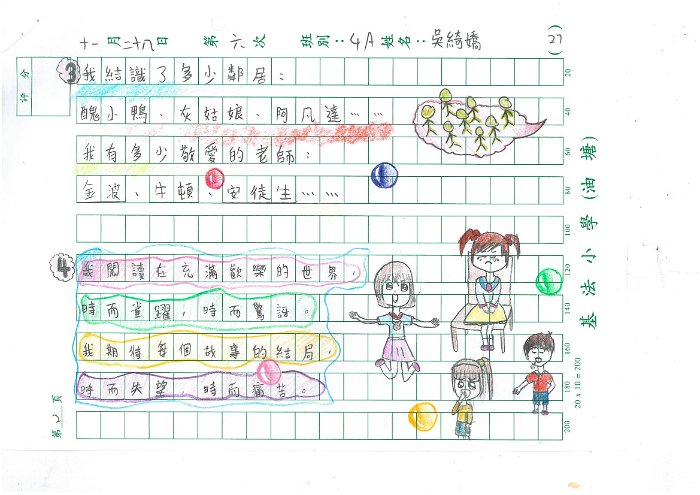 十一月二十八日 第六次 班別：4A 姓名：吳綺嬌 (27)
評分
3 我結識了多少鄰居：
醜小鴨、灰姑娘、阿凡達……
我有多少敬愛的老師：
金波、牛頓、安徒生……
4 我閱讀在充滿歡樂的世界，
時而雀躍，時而驚訝。
我期待每個故事的結局，
時而失望，時而痛苦。
第2頁
20
40
60
80
100
120
140
160
180
200
20 x 10 = 200
基法小學(油塘)